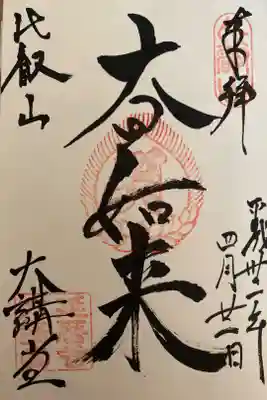 奉拝
平成卅一年
四月廿一日
大日如来
比叡山
大講堂